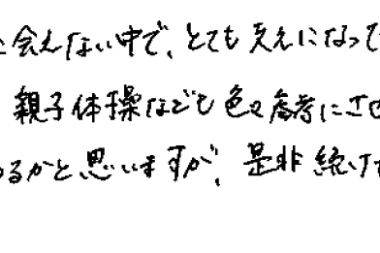 に会えない中で、とても支えになって
親子体操なども色々参考にさせ
るかと思いますが、是非続け